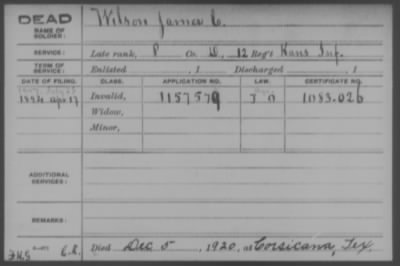 DEAD
NAME OF SOLDIER:
Wilson James C.
SERVICE:
Late rank, P Co. D, 12 Reg't Kans Inf.
TERM OF SERVICE:
Enlisted , 1 Discharged , 1
DATE OF FILING. CLASS. APPLICATION NO. LAW. CERTIFICATE NO.
1894 Apr 17 Invalid, 1157579 1083.026
Widow,
Minor,
ADDITIONAL SERVICES:
REMARKS:
Died Dec 5, 1920, at Corsicana, Tex.